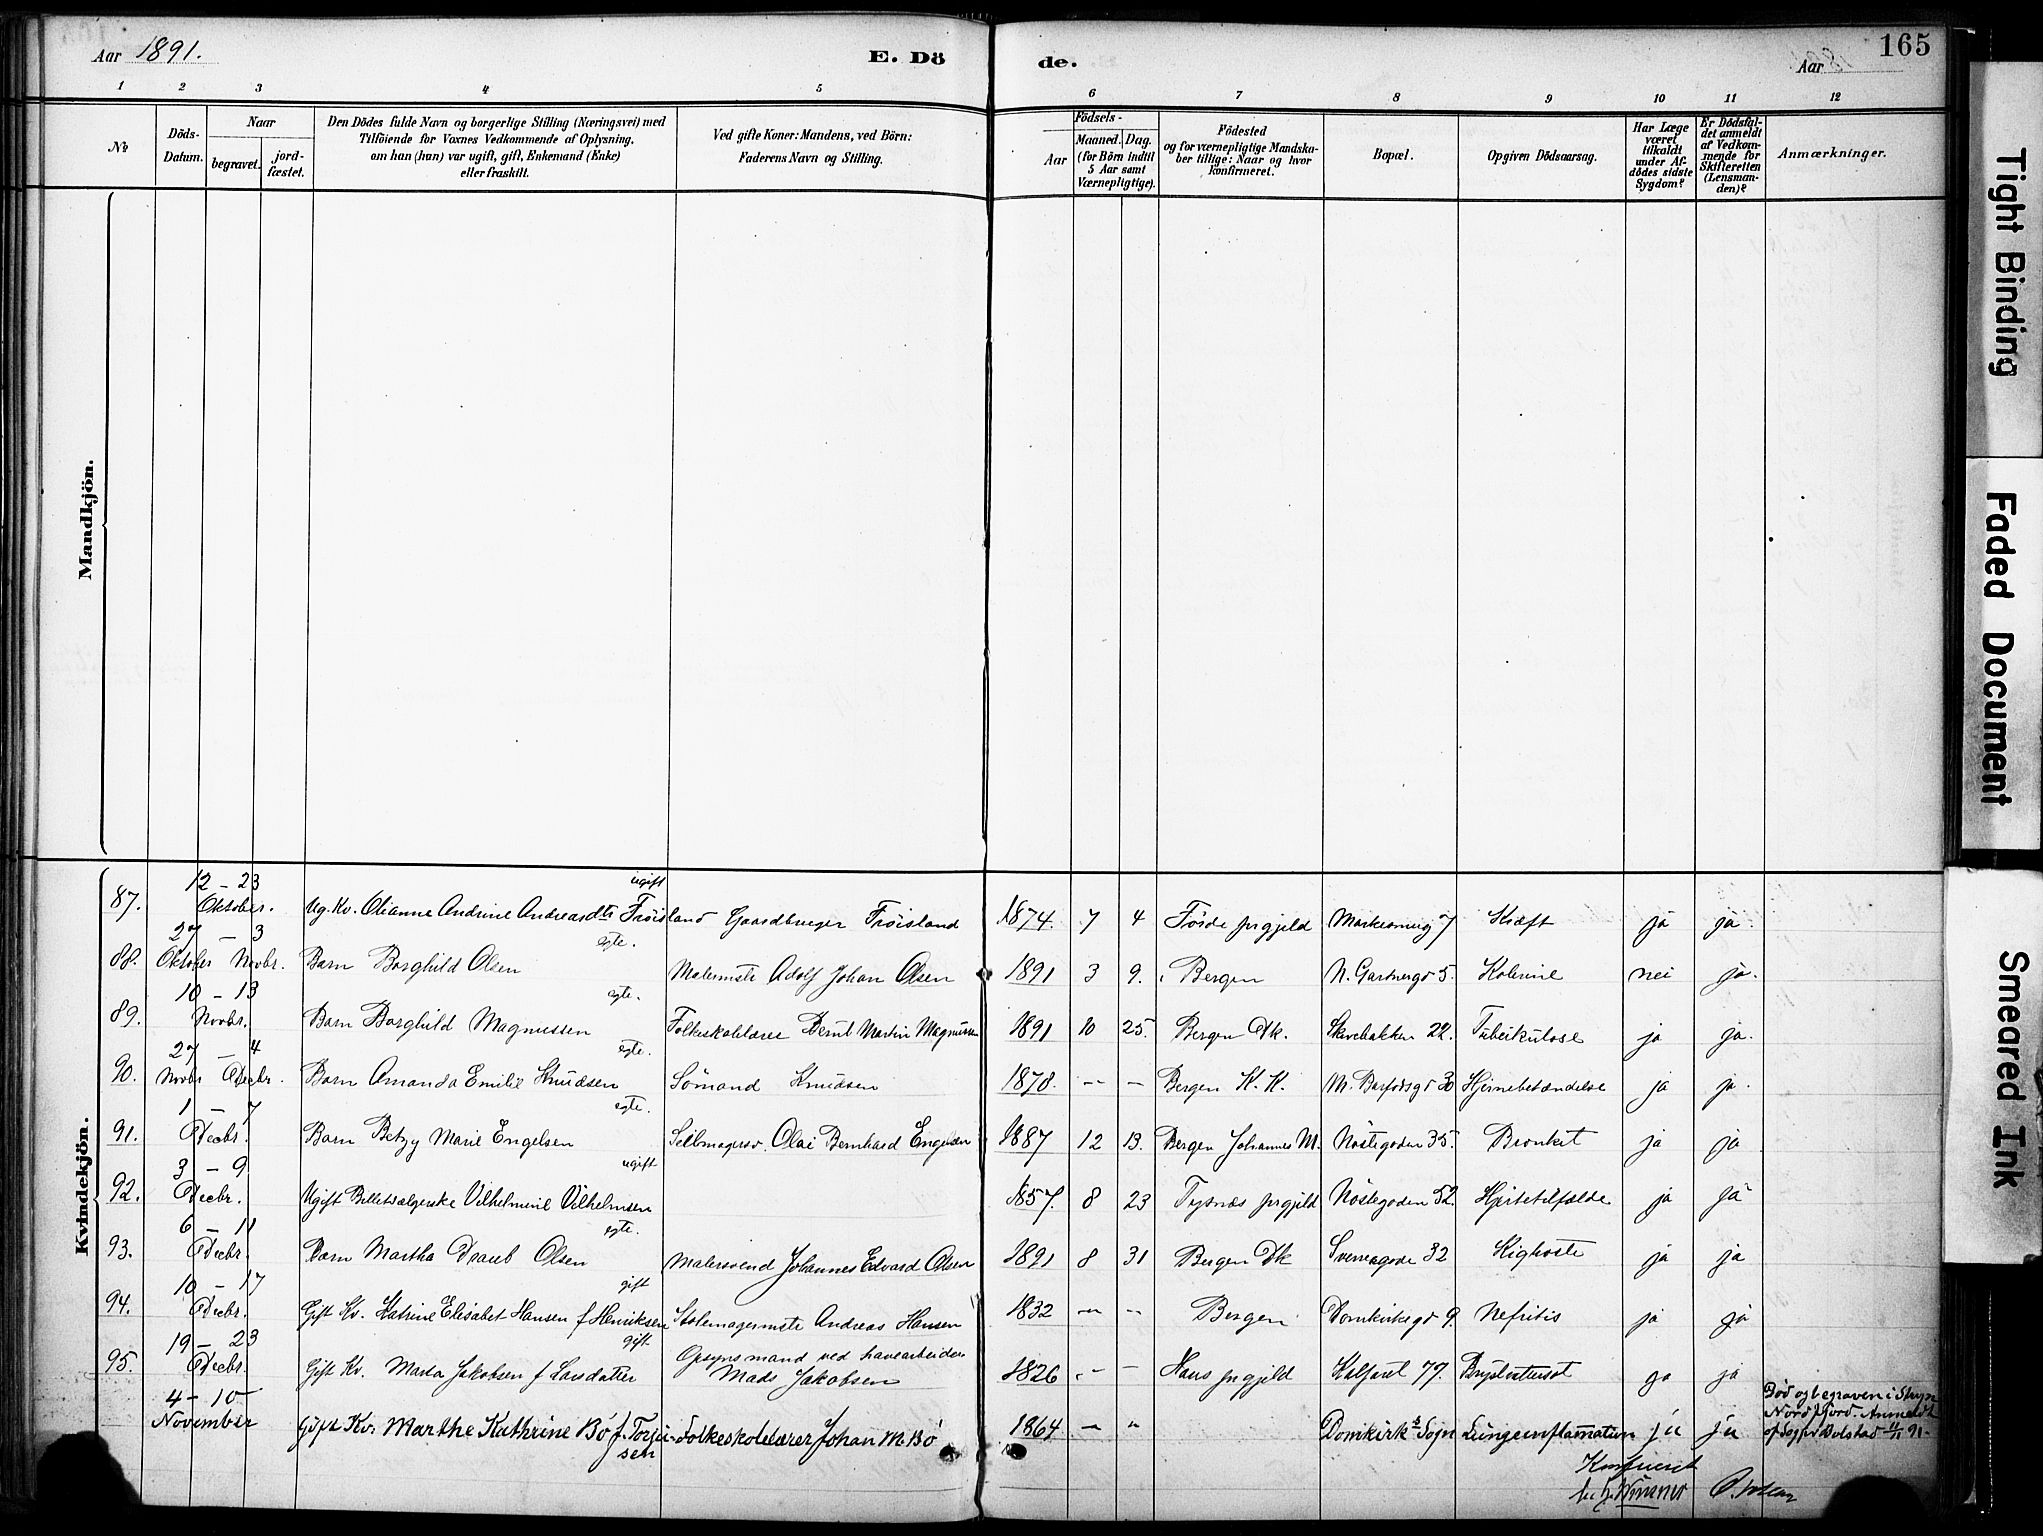 Aar 1891.
E. Dö
de.
Aar
165
1 2 3 4 5 6 7 8 9 10 11 12
No
Döds-
Datum.
Naar
begravet.
jord-
fæstet.
Den Dödes fulde Navn og borgerlige Stilling (Næringsvei) med
Tilföiende for Voxnes Vedkommende af Oplysning,
om han (hun) var ugift, gift, Enkemand (Enke)
eller fraskilt.
Ved gifte Koner: Mandens, ved Börn:
Faderens Navn og Stilling.
Födsels-
Aar
Maaned.
Dag.
(for Börn indtil
5 Aar samt
Værnepligtige).
Födested
og for værnepligtige Mandska-
ber tillige: Naar og hvor
konfirmeret.
Bopæl.
Opgiven Dödsaarsag.
Har Læge
været
tilkaldt
under Af-
dödes sidste
Sygdom?
Er Dödsfal-
det anmeldt
af Vedkom-
mende for
Skifteretten
(Lensman-
den)?
Anmærkninger.
Mandkjön.
Kvindekjön.
87. 12 – 23 Oktober. Ug. Kv. Olianne Andrine Andreasdtr Tröisland ugift Gaardbruger Tröisland 1874. 7 4 Förde prgjeld 7 Kræft ja ja.
88. 27 – 3 Oktober Novbr. Barn Borghild Olsen egte. Malermstr Adolf Johan Olsen 1891 3 9. Bergen N. 5. Kolerine nei ja.
89. 10 – 13 Novbr. Barn Borghild Magnussen egte. Folkeskolelærer Bernt Martin Magnussen 1891 10 25. Bergen Dk. Skivebakken 22. Tuberkulose ja ja.
90. 27 – 4 Novbr Decbr. Barn Amanda Emilie Knudsen egte. Sömand Knudsen 1878. – – Bergen K. K. 30 Hjernebetændelse ja ja.
91. 1 – 7 Decbr. Barn Betzy Marie Engelsen egte. Seilmagersv. Olai Bernhard Engelsen 1887 12 13. Bergen Johannes M. Nöstegaden 35. Bronkit ja ja
92. 3 – 9 Decbr. Ugift Billetsælgerske Vilhelmine Vilhelmsen ugift 1857. 8 23 Tysnæs prgjeld Nöstegaden 52. Hjertetilfælde ja ja
93. 6 – 11 Decbr. Barn Martha Draub Olsen egte. Malersvend Johannes Edvard Olsen 1891 8 31 Bergen Dk Sverresgade 32 Kighoste ja ja
94. 10 – 17 Decbr. Gift Kv. Katrine Elisabet Hansen f Henriksen gift Stolemagermstr Andreas Hansen 1832 – – Bergen Domkirkegd 9. Nefritis ja ja
95. 19 – 23 Decbr. Gift Kv. Marta Jakobsen f Larsdatter gift Opsynsmand ved havearbeiden
Mads Jakobsen 1826 – – Haus prgjeld Kalfaret 77. ja ja
4 – 10 November Gift Kv. Marthe Kathrine Bö f. Torjusen Folkeskolelærer Johan M. Bö 1864 – " Domkirkes Sogn Lungeinflamation ja ja
Död og begraven i Stryn
Nordfjord. Anmeldt
af Sogpr Bolstad 11/11 91.
Konfereret
Tight Binding
Faded Document
Smeared Ink